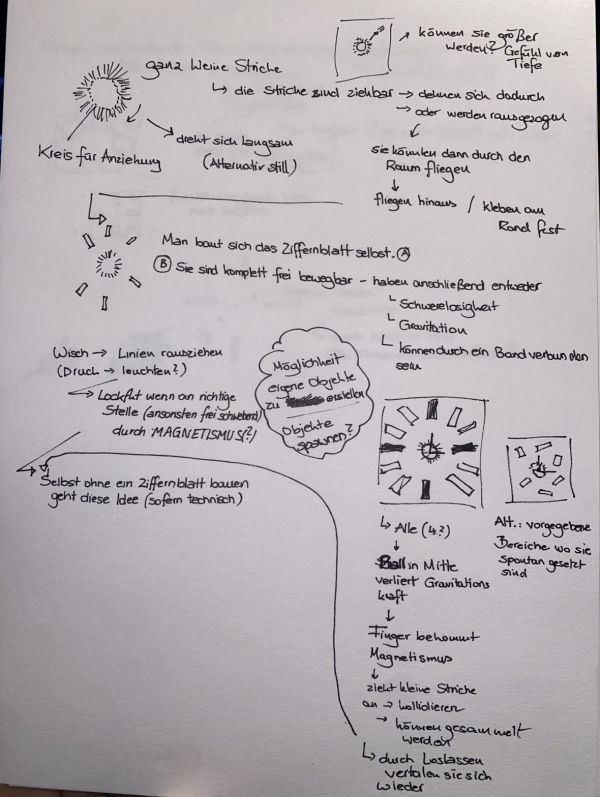 können sie größer
werden? Gefühl von
Tiefe
ganz kleine Striche
↳ die Striche sind ziehbar → dehnen sich dadurch
→ oder werden rausgezogen
Kreis für Anziehung
dreht sich langsam
(Alternativ still)
sie könnten dann durch den
Raum fliegen
fliegen hinaus / kleben am
Rand fest
Man baut sich das Ziffernblatt selbst. A
B Sie sind komplett frei bewegbar - haben anschließend entweder
Schwerelosigkeit
Gravitation
können durch ein Band verbunden
sein
Wisch → Linien rausziehen
(Druck → leuchten?)
Lockfkt wenn an richtige
Stelle (ansonsten frei schwebend)
durch MAGNETISMUS(?)
Möglichkeit
eigene Objekte
zu erstellen
Objekte
spawnen?
Selbst ohne ein Ziffernblatt bauen
geht diese Idee (sofern technisch)
↳ Alle (4?)
Ball in Mitte
verliert Gravitations
kraft
Finger bekommt
Magnetismus
zieht kleine Striche
an → kollidieren
→ können gesammelt
werden
↳ durch Loslassen
verteilen sie sich
wieder
Alt.: vorgegebene
Bereiche wo sie
spontan gesetzt
sind